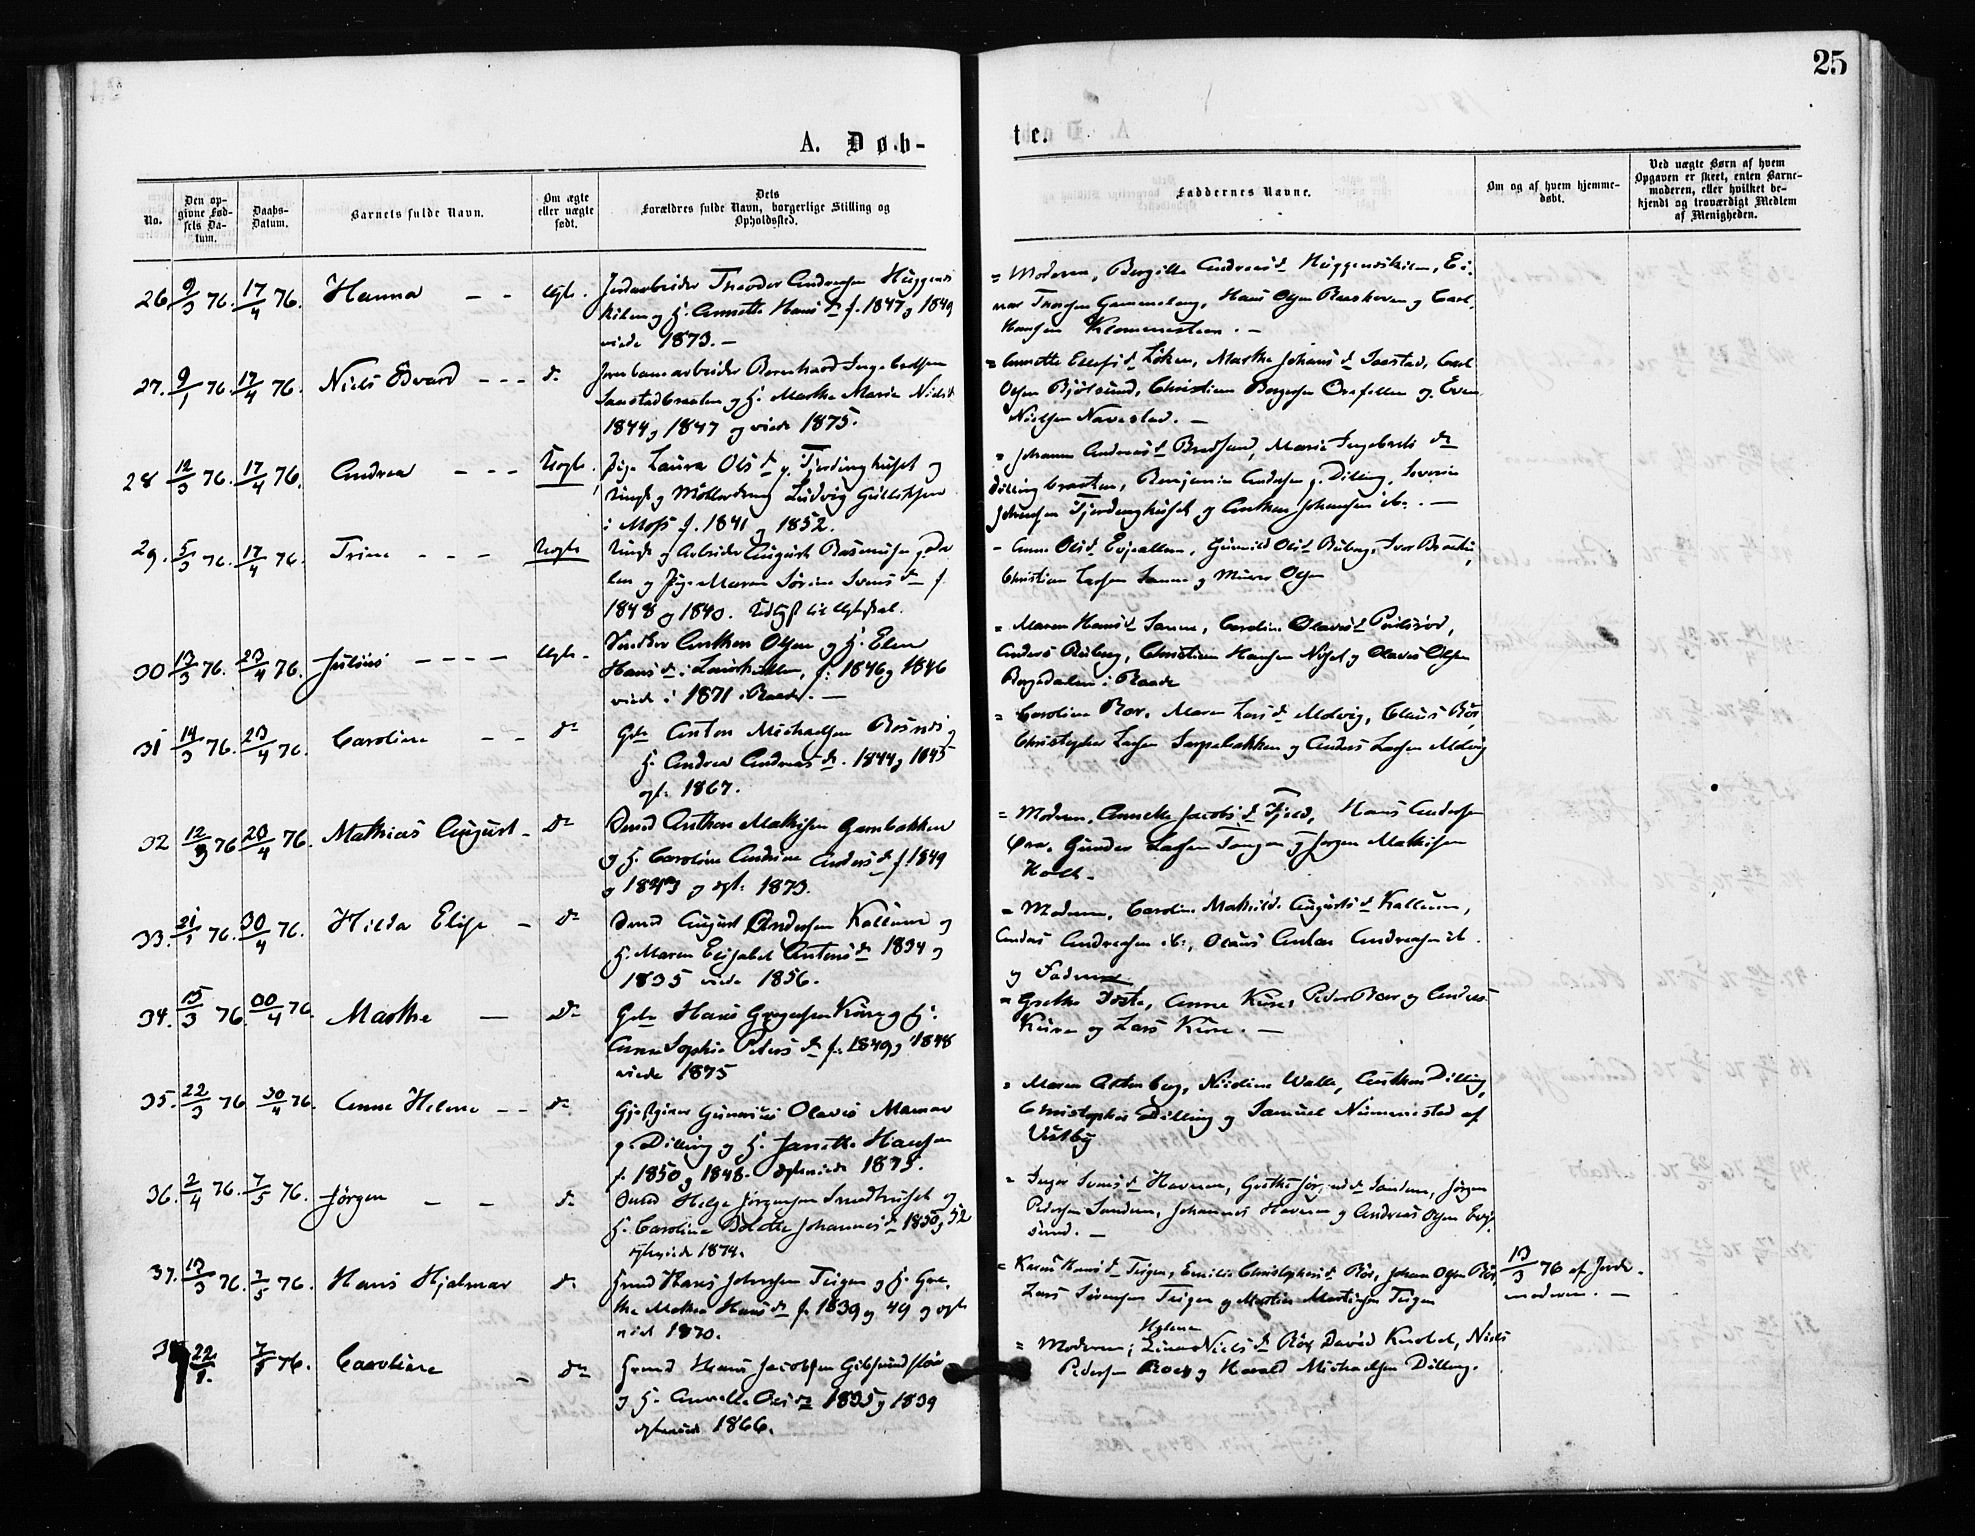 25
A. Døb-
te.
No.
Den op-
givne Fød-
sels Da-
tum.
Daabs-
Datum.
Barnets fulde Navn.
Om ægte
eller uægte
født.
Dets
Forældres fulde Navn, borgerlige Stilling og
Opholdssted.
Faddernes Navne.
Om og af hvem hjemme-
døbt.
Ved uægte Børn af hvem
Opgaven er skeet, enten Barne-
moderen, eller hvilket be-
kjendt og troværdigt Medlem
af Menigheden.
26 9/3 76. 17/4 76. Hanna - - Ægte. Jordarbeider Theodor Andreasen Huggenes
kilen og H. Annette Hans d. f. 1847 og 1849
viede 1873. -
= Moderen, Bergitte Andreas d. Huggeneskilen, Ei-
nar Thorsen Gammeleng, Hans Olsen og Carl
Hansen
27. 9/1 76. 17/4 76. Niels Edvard - - - do Jernbanearbeider Bernhard Ingebretsen
Saastadbraaten og H. Marthe Marie Niels d.
1844 og 1847 og viede 1875.
= Annette Ellefs d. Løken, Marthe Johans d. Saastad, Carl
Olsen Bjølsund, Christian Borgersen og Even
Nielsen Navestad. -
28 12/3 76. 17/4 76. Andrea - - - Uægte. Pige Laura Ols d. p. Fjerdinghuset og
Ungk. og Ludvig Gulliksen
i Moss f. 1841 og 1852.
= Johanne Andreas d. Marie Ingebrets d.
Dillingbraaten, Benjamin Andersen p. Dilling, Severin
Johnsen Fjerdinghuset og Anthon Johansen ib. -
29. 5/3 76. 17/4 76. Trine - - - Uægte Ungk. og Arbeider August Rasmusen p. Da
len og Pige Maren Sørine Svens d. f.
1848 og 1840.
- Anne Ols d. Gunnild Ols d. Ruberg, Ivar
Christian Larsen Sanne og Olsen
30 13/3 76. 23/4 76. Julius - - - - Ægte. Anthon Olsen og H. Elen
Hans d. i f. 1846 og 1846
viede i 1871 i Raade. -
= Maren Hans d. Sanne, Caroline Olaves d.
Anders Ruberg, Christian Hansen og Olaves Olsen
i Raade
31 14/3 76. 23/4 76. Caroline - - do Gbr. Anton Michaelsen Rosnes og
H. Andrea Andreas d. 1844 og 1845
ægt. 1867.
= Caroline Roer, Maren Lars d. Molvig, Claus Rør,
Christopher Larsen Sarpebakken og Anders Larsen Molvig
32 12/3 76 23/4 76. Mathias August - do Smed Anthon Mathisen Gambakken
og H. Caroline Andrine Anders d. f. 1849
og 1843 og ægt. 1873.
= Moderen, Annette Jacobs d. Fjeld, Hans Andersen
Øra, Gunder Larsen Tangen og Jørgen Mathisen
Holt.
33. 21/1 76. 30/4 76. Hilda Elise - do Smed August Andersen Kallum og
H. Maren Elisabet Antons d. 1834 og
1835 viede 1856.
= Moderen, Caroline Mathilde Augusts d. Kallum,
Andas Andreasen ib., Olaus Anton Andreasen ib.
og Faderen
34. 15/3 76. 30/4 76. Marthe - do Gbr. Hans Gregersen Kure og H.
Anne Sophie Peters d. f. 1849 og 1848
viede 1875
= Grethe Anne Kure, Peder Roer og Andreas
Kure og Lars Kure. -
35. 22/3 76 30/4 76. Anne Helene - - do Gjestgiver Gunerius Olaves Mamen
p. Dilling og H. Janette Hansen
f. 1850 og 1848. ægteviede 1875.
= Maren Nicoline Walle, Anthon Dilling,
Christopher Dilling og Samuel af
Vestby
36. 2/4 76. 7/5 76. Jörgen - - do Smed Helge Jørgensen Smedhuset og
H. Caroline Bolette Johannes d. 1850 og 52
ægteviede 1874.
= Inger Svens d. Haveren, Grethe d. Sanden, Jørgen
Pedersen Sanden, Johannes Haveren og Andreas Olsen Evje
sund. -
37. 13/3 76. 7/5 76. Hans Hjalmar do Hans Johnsen Teigen og H. Gre-
the Mathea Hans d. f. 1839 og 49 og ægte
viet 1870.
= Karen Hans d. Teigen, Emilie Christophers d. Rør, Johan Olsen Rør,
Lars Sørensen Teigen og Martin Martinsen Teigen
13/3 76 af Jorde-
moderen. -
38 22/1. 7/5 76. Caroline - do Hans Jacobsen
og H. Annette Ols d. 1835 og 1839
ægteviede 1866.
= Moderen, Helene Niels d. Rør, David Niels
Pedersen Roer og Harald Michaelsen Dilling.